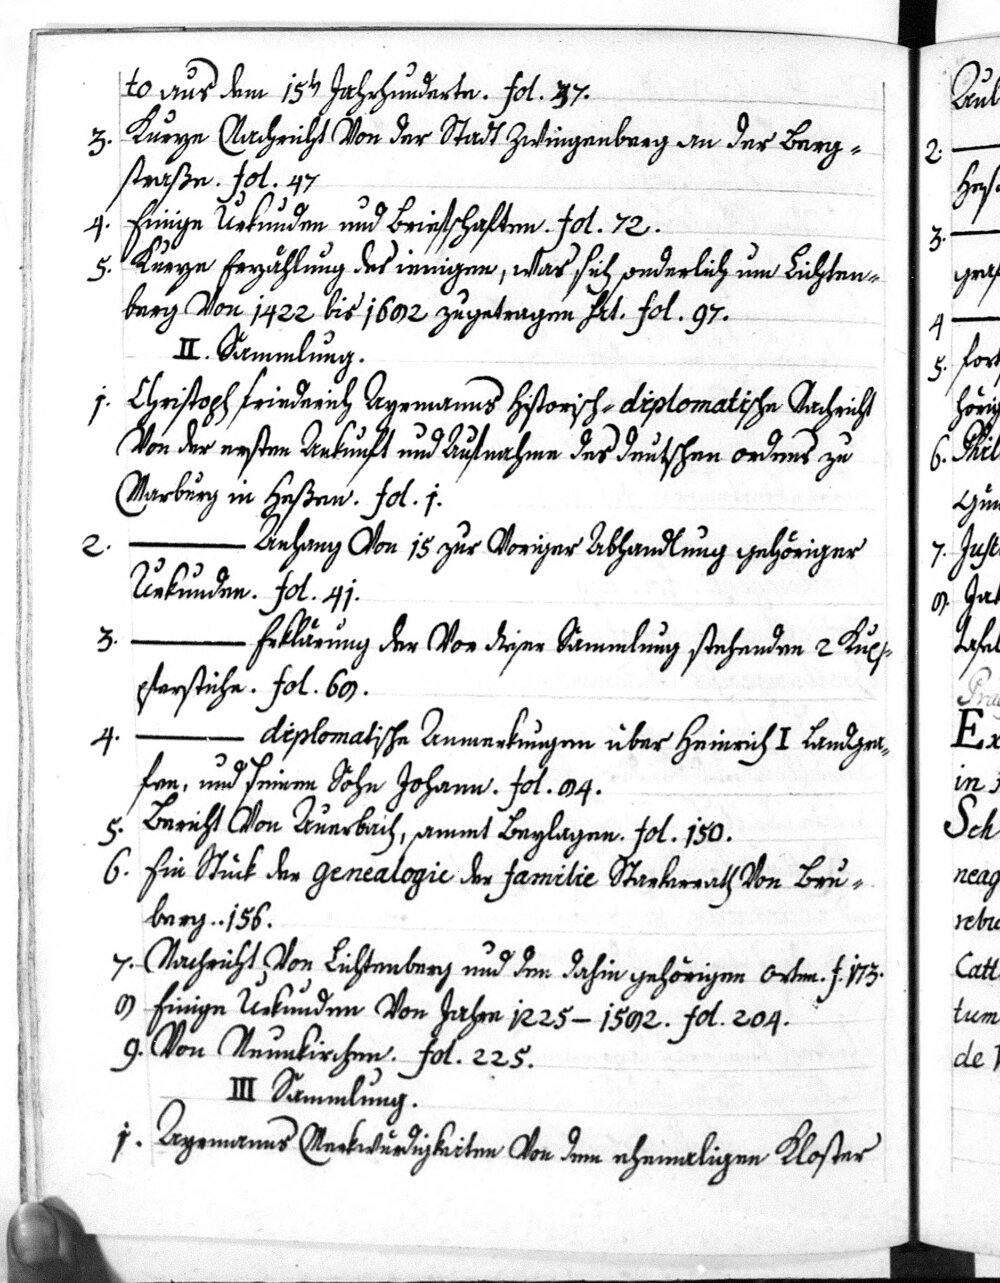 to aus dem 15t Jahrhunderte. fol. 37.
3. Kurze Nachricht von der Stadt Zwingenberg an der Berg-
straße. fol. 47
4. Einige Urkunden und Briefschaften. fol. 72.
5. Kurze Erzählung des ienigen, was sich sonderlich um Lichten-
berg von 1422 bis 1682 zugetragen hat. fol. 97.
II. Sammlung.
1. Christoph Friederich Ayrmanns Historisch-diplomatische Nachricht
von der ersten Ankunft und Aufnahme des deutschen ordens zu
Marburg in Heßen. fol. 1.
2. ——— Anhang von 15 zur voriger Abhandlung gehöriger
Urkunden. fol. 41.
3. ——— Erklärung der vor dieser Sammlung stehenden 2 Kup-
pferstiche. fol. 68.
4. ——— diplomatische Anmerkungen über Heinrich I Landgra-
fen, und seinen Sohn Johann. fol. 84.
5. Bericht von Auerbach, sammt Beylagen. fol. 150.
6. Ein Stück der genealogie der familie Starkerath von Bru-
berg..156.
7. Nachricht von Lichtenberg und den dahin gehörigen orten. f. 173.
8 Einige Urkunden von Jahre 1225–1582. fol. 204.
9. Von Neunkirchen. fol. 225.
III Sammlung.
1. Ayrmanns Merkwürdigkeiten von dem ehemaligen Kloster
2.
3.
4
5.
6.
7. Just
8.
Ex
in
Sch
neag
rebu
Catt
tum
de